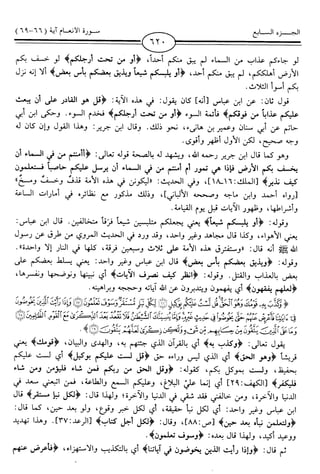 الجـــزء الســـابع
٦٢٠
سورة الأنعام آية (٦٦-٦٩)
لو جاءكم عذاب من السماء لم يبق منكم أحداً، ﴿أو من تحت أرجلكم﴾ لو خسف بكم
الأرض أهلككم، لم يبق منكم أحد، ﴿أو يلبسكم شيعاً ويذيق بعضكم بأس بعض﴾ ألا إنه نزل
بكم أسوأ الثلاث.
قول ثان: عن ابن عباس [أنه] كان يقول: في هذه الآية: ﴿قل هو القادر على أن يبعث
عليكم عذاباً من فوقكم﴾ فأئمة السوء ﴿أو من تحت أرجلكم﴾ فخدم السوء. وحكى ابن أبي
حاتم عن أبي سنان وعمير بن هانىء، نحو ذلك. وقال ابن جرير: وهذا القول وإن كان له
وجه صحيح، لكن الأول أظهر وأقوى.
وهو كما قال ابن جرير رحمه الله، ويشهد له بالصحة قوله تعالى: ﴿أأمنتم من في السماء أن
يخسف بكم الأرض فإذا هي تمور أم أمنتم من في السماء أن يرسل عليكم حاصباً فستعلمون
كيف نذير﴾ [الملك: ١٦، ١٧]، وفي الحديث: «ليكونن في هذه الأمة قذف وخسف ومسخ»
[رواه أحمد وابن ماجه وصححه الألباني]، وذلك مذكور مع نظائره في أمارات الساعة
وأشراطها، وظهور الآيات قبل يوم القيامة.
وقوله: ﴿أو يلبسكم شيعاً﴾ يعني يجعلكم متلبسين شيعاً فرقاً متخالفين. قال ابن عباس:
يعني الأهواء، وكذا قال مجاهد وغير واحد، وقد ورد في الحديث المروي من طرق عن رسول
الله ﷺ أنه قال: «وستفترق هذه الأمة على ثلاث وسبعين فرقة، كلها في النار إلا واحدة».
وقوله: ﴿ويذيق بعضكم بأس بعض﴾ قال ابن عباس وغير واحد: يعني يسلط بعضكم على
بعض بالعذاب والقتل. وقوله: ﴿انظر كيف نصرف الآيات﴾ أي نبينها ونوضحها ونفسرها،
﴿لعلهم يفقهون﴾ أي يفهمون ويتدبرون عن الله آياته وحججه وبراهينه.
﴿وَكَذَّبَ بِهِ قَوْمُكَ وَهُوَ الْحَقُّ قُل لَّسْتُ عَلَيْكُم بِوَكِيلٍ لِّكُلِّ نَبَإٍ مُّسْتَقَرٌّ وَسَوْفَ تَعْلَمُونَ وَإِذَا رَأَيْتَ الَّذِينَ يَخُوضُونَ
فِي آيَاتِنَا فَأَعْرِضْ عَنْهُمْ حَتَّىٰ يَخُوضُوا فِي حَدِيثٍ غَيْرِهِ وَإِمَّا يُنسِيَنَّكَ الشَّيْطَانُ فَلَا تَقْعُدْ بَعْدَ الذِّكْرَىٰ مَعَ الْقَوْمِ الظَّالِمِينَ
وَمَا عَلَى الَّذِينَ يَتَّقُونَ مِنْ حِسَابِهِم مِّن شَيْءٍ وَلَٰكِن ذِكْرَىٰ لَعَلَّهُمْ يَتَّقُونَ﴾
يقول تعالى: ﴿وكذب به﴾ أي بالقرآن الذي جئتهم به، والهدى والبيان، ﴿قومك﴾ يعني
قريشاً ﴿وهو الحق﴾ أي الذي ليس وراءه حق ﴿قل لست عليكم بوكيل﴾ أي لست عليكم
بحفيظ، ولست بموكل بكم، كقوله: ﴿وقل الحق من ربكم فمن شاء فليؤمن ومن شاء
فليكفر﴾ [الكهف: ٢٩] أي إنما عليّ البلاغ، وعليكم السمع والطاعة، فمن اتبعني سعد في
الدنيا والآخرة، ومن خالفني فقد شقي في الدنيا والآخرة؛ ولهذا قال: ﴿لكل نبإ مستقر﴾ قال
ابن عباس وغير واحد: أي لكل نبأ حقيقة، أي لكل خبر وقوع، ولو بعد حين، كما قال:
﴿ولتعلمن نبأه بعد حين﴾ [ص: ٨٨]، وقال: ﴿لكل أجل كتاب﴾ [الرعد: ٣٨]. وهذا تهديد
ووعيد أكيد، ولهذا قال بعده: ﴿وسوف تعلمون﴾.
ثم قال: ﴿وإذا رأيت الذين يخوضون في آياتنا﴾ أي بالتكذيب والاستهزاء، ﴿فأعرض عنهم